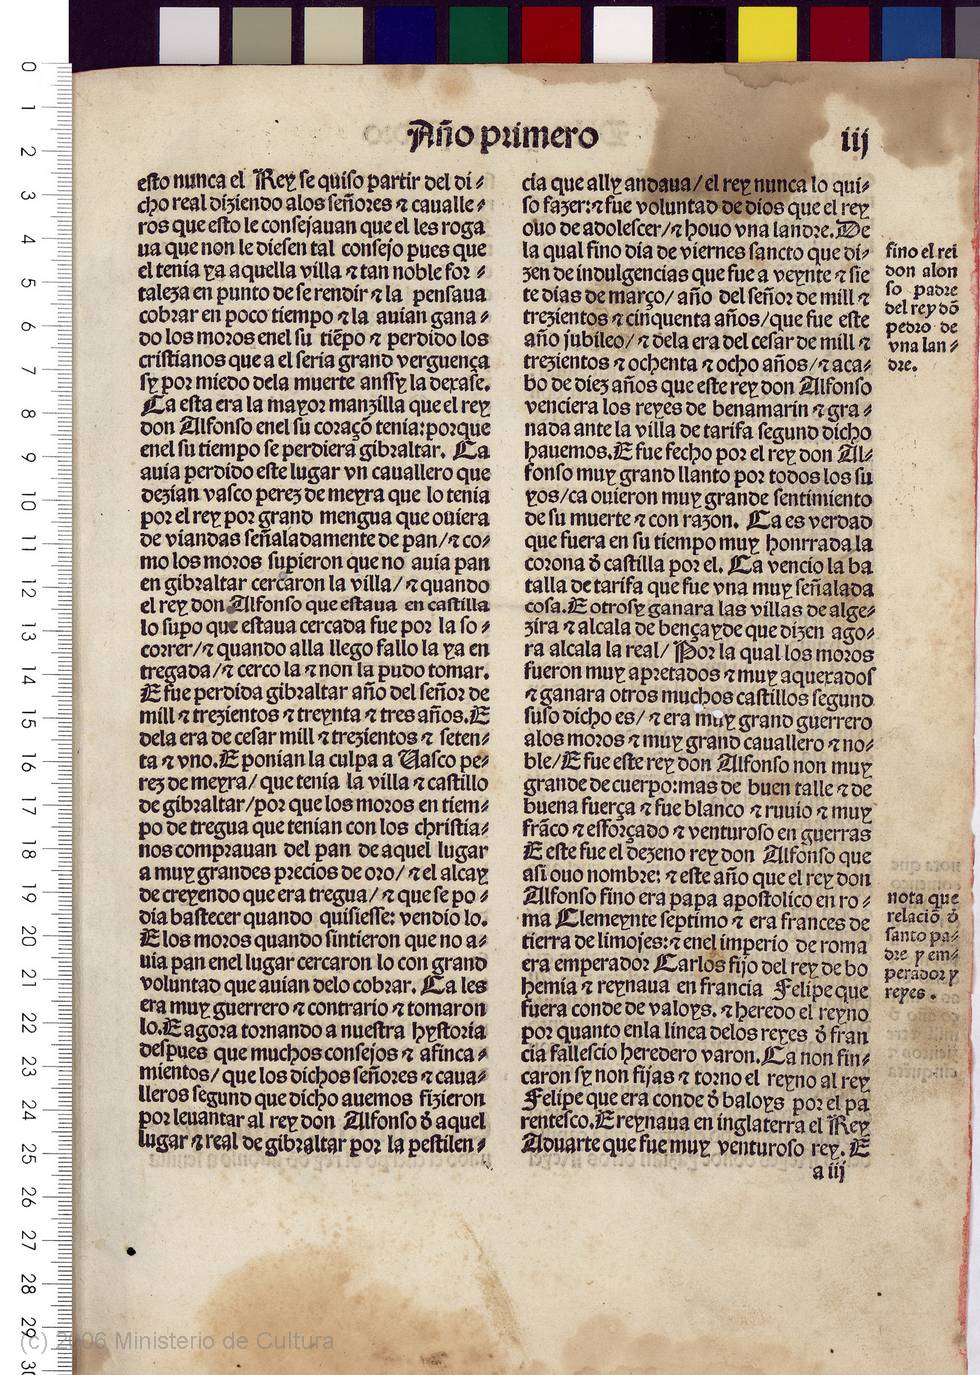 Año primero
iij
esto nunca el Rey se quiso partir del di⸗
cho real diziendo alos señores ⁊ cavalle⸗
ros que esto le consejauan que el les roga
ua que non le diesen tal consejo pues que
el tenia ya aquella villa ⁊ tan noble for⸗
taleza en punto de se rendir ⁊ la pensaua
cobrar en poco tiempo ⁊ la auian gana⸗
do los moros enel su tiẽpo ⁊ perdido los
cristianos que a el seria grand verguença
sy por miedo dela muerte anssy la dexase.
Ca esta era la mayor manzilla que el rey
don Alfonso enel su coraçõ tenia: porque
enel su tiempo se perdiera gibraltar. Ca
auia perdido este lugar vn cauallero que
dezian vasco perez de meyra que lo tenia
por el rey por grand mengua que ouiera
de viandas señaladamente de pan/⁊ co⸗
mo los moros supieron que no auia pan
en gibraltar cercaron la villa/⁊ quando
el rey don Alfonso que estaua en castilla
lo supo que estaua cercada fue por la so⸗
correr/⁊ quando alla llego fallo la ya en
tregada/⁊ cerco la ⁊ non la pudo tomar.
E fue perdida gibraltar año del señor de
mill ⁊ trezientos ⁊ treynta ⁊ tres años. E
dela era de cesar mill ⁊ trezientos ⁊ seten⸗
ta ⁊ vno. E ponian la culpa a Vasco pe⸗
rez de meyra/ que tenia la villa ⁊ castillo
de gibraltar/por que los moros en tiem⸗
po de tregua que tenian con los christia⸗
nos comprauan del pan de aquel lugar
a muy grandes precios de oro/⁊ el alcay
de creyendo que era tregua/⁊ que se po⸗
dia bastecer quando quisiesse: vendio lo.
E los moros quando sintieron que no a⸗
uia pan enel lugar cercaron lo con grand
voluntad que auian delo cobrar. Ca les
era muy guerrero ⁊ contrario ⁊ tomaron
lo. E agora tornando a nuestra hystoria
despues que muchos consejos ⁊ afinca⸗
mientos/ que los dichos señores ⁊ caua⸗
lleros segund que dicho auemos fizieron
por leuantar al rey don Alfonso d̃ aquel
lugar ⁊ real de gibraltar por la pestilen⸗
cia que ally andaua/el rey nunca lo qui⸗
so fazer:⁊ fue voluntad de dios que el rey
ouo de adolescer/⁊ houo vna landre. De
la qual fino dia de viernes sancto que di⸗
zen de indulgencias que fue a veynte ⁊ sie
te dias de março/ año del señor de mill ⁊
trezientos ⁊ cinquenta años/que fue este
año jubileo/⁊ dela era del cesar de mill ⁊
trezientos ⁊ ochenta ⁊ ocho años/⁊ aca⸗
bo de diez años que este rey don Alfonso
venciera los reyes de benamarin ⁊ gra⸗
nada ante la villa de tarifa segund dicho
hauemos. E fue fecho por el rey don Al⸗
fonso muy grand llanto por todos los su
yos/ca ouieron muy grande sentimiento
de su muerte ⁊ con razon. Ca es verdad
que fuera en su tiempo muy honrrada la
corona d̃ castilla por el. Ca vencio la ba
talla de tarifa que fue vna muy señalada
cosa. E otrosy ganara las villas de alge⸗
zira ⁊ alcala de bençayde que dizen ago⸗
ra alcala la real/ Por la qual los moros
fueron muy apretados ⁊ muy aquexados
⁊ ganara otros muchos castillos segund
suso dicho es/⁊ era muy grand guerrero
alos moros ⁊ muy grand cauallero ⁊ no⸗
ble/E fue este rey don Alfonso non muy
grande de cuerpo:mas de buen talle ⁊ de
buena fuerça ⁊ fue blanco ⁊ ruuio ⁊ muy
frãco ⁊ esforçado ⁊ venturoso en guerras
E este fue el dezeno rey don Alfonso que
asi ouo nombre: ⁊ este año que el rey don
Alfonso fino era papa apostolico en ro⸗
ma Clemeynte septimo ⁊ era frances de
tierra de limojes:⁊ enel imperio de roma
era emperador Carlos fijo del rey de bo
hemia ⁊ reynaua en francia Felipe que
fuera conde de valoys. ⁊ heredo el reyno
por quanto enla linea delos reyes d̃ fran
cia fallescio heredero varon. Ca non fin⸗
caron sy non fijas ⁊ torno el reyno al rey
Felipe que era conde d̃ baloys por el pa
rentesco. E reynaua en inglaterra el Rey
Aduarte que fue muy venturoso rey. E
a iij
fino el rei
don alon
so padre
del rey dõ
pedro de
vna lan⸗
dre.
nota que
relaciõ d̃
santo pa⸗
dre y em⸗
perador y
reyes.
(c) 2006 Ministerio de Cultura
0
1
2
3
4
5
6
7
8
9
10
11
12
13
14
15
16
17
18
19
20
21
22
23
24
25
26
27
28
29
30